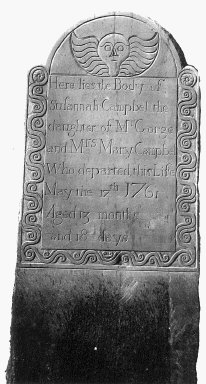 Here lies the Body of
Susannah Campbel the
daughter of Mr George
and Mrs Mary Campbel
Who departed this Life
May the 12th 1761
Aged 13 months
and 18 days